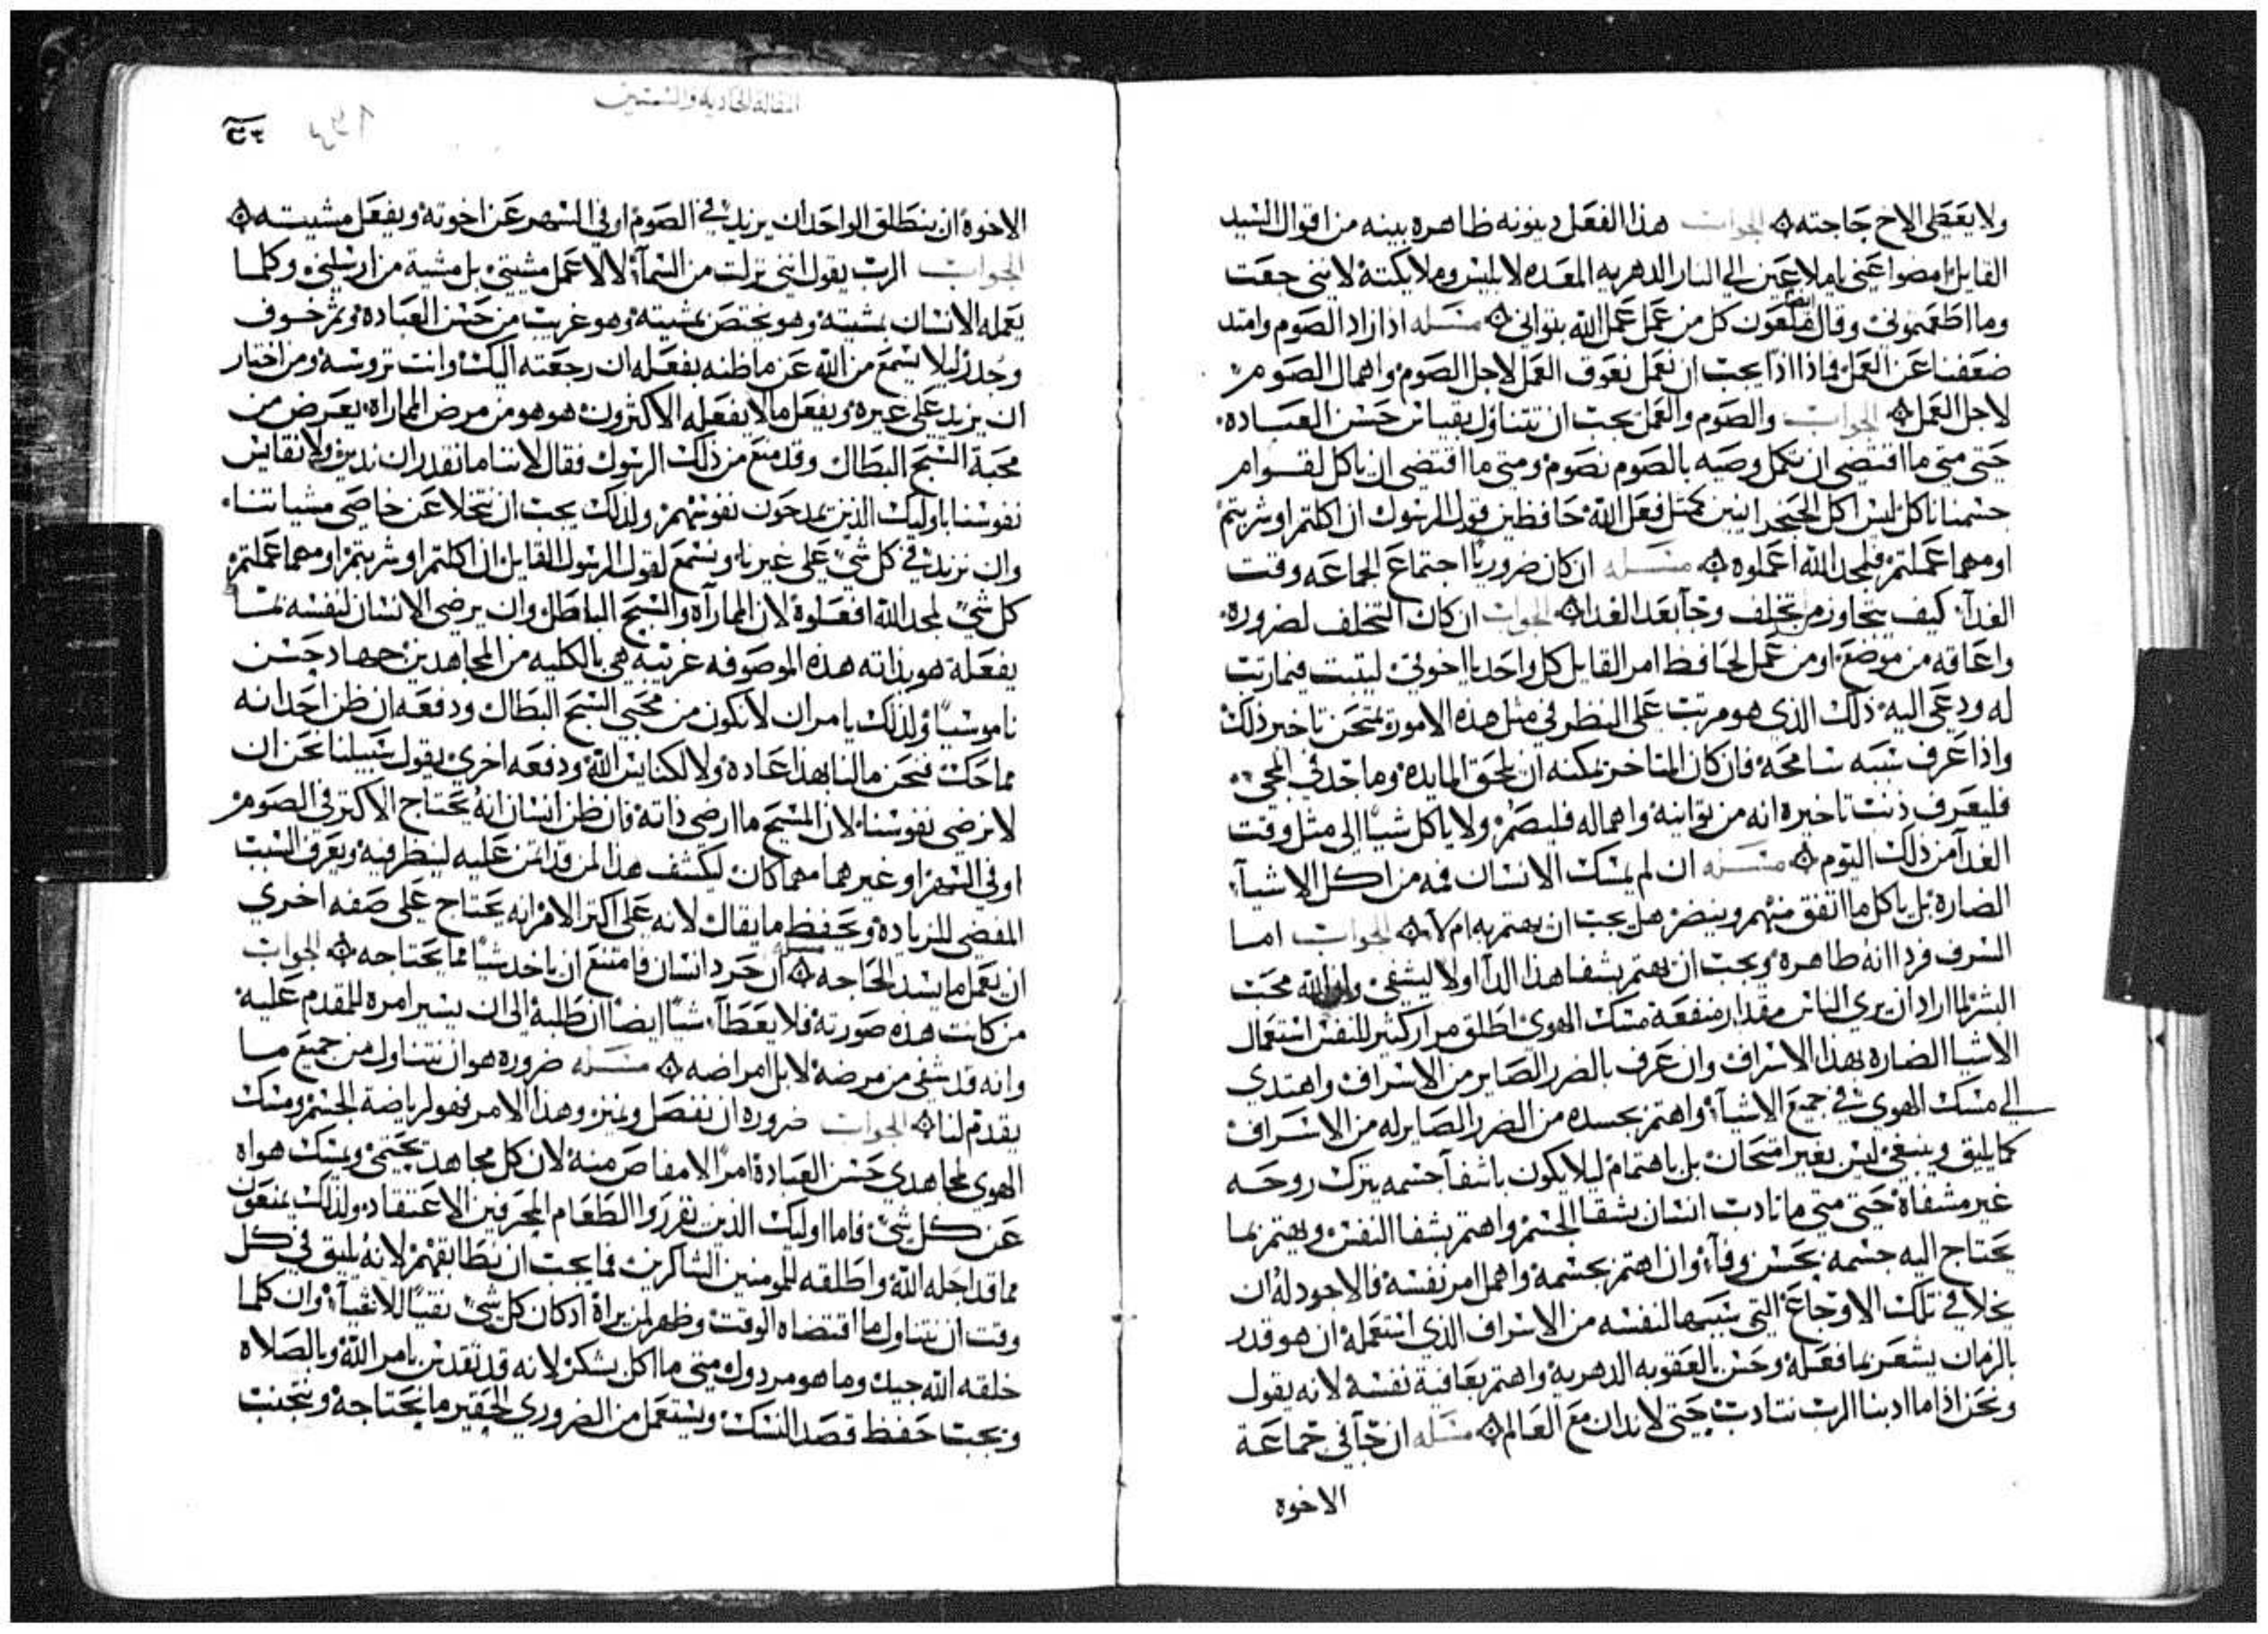 ولا يعطى الاخ حاجته الجواب هذا الفعل دينونه ظاهره بينه من اقوال السيد
القايل امضوا عني ياملاعين الي النار الدهريه المعده لابليس وملايكته لانني جعت
وما اطعمتموني وقال ايضا ملعون كل من عمل عمل الله بتواني مسله اذا زاد الصوم وامتد
ضعفنا عن العمل فماذا اذا يجب ان نعمل نعوق العمل لاجل الصوم واهمال الصوم
لاجل العمل الجواب والصوم والعمل يجب ان تتناول بقياس حسن العباده
حتى متى ما اقتضى ان تكمل وصيه بالصوم نصوم ومتى ما اقتضى ان ناكل لقوام
جسمنا ناكل ليس اكل الحنجرانيين كمثل فعل الله حافظين قول الرسول ان اكلتم او شربتم
او مهما عملتم فلمجد الله اعملوه مسله ان كان ضروريا اجتماع الجماعه وقت
الغدآ كيف يتجاوز من تخلف وجآ بعد الغدا الجواب ان كان التخلف لضروره
واعاقه من موضع او من عمل لحافظ امر القايل كل واحد يا اخوتي ليثبت فيما رتب
له ودعي اليه ذلك الذي هو مرتب على النظر في مثل هذه الامور يمتحن تاخير ذلك
واذا عرف سببه سامحه فان كان المتاخر يمكنه ان يلحق المايده وما جد في المجي
فليعرف ذنب تاخيره انه من توانيه واهماله فليصم ولا ياكل شيا الى مثل وقت
الغدآ من ذلك اليوم مسله ان لم يمسك الانسان فمه من اكل الاشيآ
الضاره بل ياكل ما اتفق منهم وينضر هل يجب ان يهتم به ام لا الجواب اما
السرف فرداانه طاهره ويجب ان يهتم بشفا هذا الدآ اولا ليشفى والله محب
البشر لما اراد ان يري الناس مقدار منفعة مسك الهوى اطلق مرار كثير للنفس استعمال
الاشيا الضاره بهذا الاسراف وان عرف بالضرر الصاير من الاسراف واهتدي
الي مسك الهوى في جميع الاشيآ واهتم بجسده من الضرر الصاير له من الاسراف
كما يليق وينبغي ليس بغير امتحان بل باهتمام ليلا يكون باشفآ جسمه يترك روحه
غير مشفاة حتى متى ما تادب انسان بشفا الجسم واهتم بشفا النفس ويهتم بما
يحتاج اليه جسمه بحسن وفآ وان اهتم بجسمه واهمل امر نفسه فالاجود له ان
يخلا في تلك الاوجاع التي سببها لنفسه من الاسراف الذي استعمله ان هو قدر
بالزمان يشعر بما فعله وحس بالعقوبه الدهريه واهتم بعافية نفسه لانه يقول
ونحن اذا ما ادبنا الرب نتادب حتى لا ندان مع العالم مسله ان جآ في جماعة
الاخوه
المقاله الحاديه والستين
الاخوة ان ينطلق الواحد ان يزيد في الصوم او في السهر عن اخوته ويفعل مشيته
الجواب الرب يقول انني نزلت من السمآ لا لاعمل مشيتي بل مشية من ارسلني وكلما
يعمله الانسان بمشيته وهو يختص بمشيته وهو غريب من حسن العباده وثم خوف
وحذر ليلا يسمع من الله عن ما ظنه بفعله ان رجعته اليك وانت تروسه ومن اختار
ان يزيد على غيره ويفعل ما لا يفعله الاكثرون هو هو من مرض المماراه يعرض من
محبة السبح البطال وقد منع من ذلك الرسول فقال لاننا ما نقدر ان ندين ولا نقايس
نفوسنا باوليك الذين يمدحون نفوسهم ولذلك يجب ان نتخلا عن خاصي مشياتنا
وان نزيد في كل شي على غيرنا ونسمع لقول الرسول القايل ان اكلتم او شربتم او مهما عملتم
كل شي لمجد الله افعلوة لان المماراه والسبح الباطل وان يرضى الانسان لنفسه بما
يفعله هو بذاته هذه الموصوفه غريبه هي بالكليه من المجاهدين جهاد حسن
ناموسيا ولذلك يامر ان لا نكون من محبي السبح البطال ودفعه ان ظن احد انه
مماحك فنحن ما لنا بهذا عادة ولا لكنايس الله ودفعه اخرى يقول سبيلنا نحن ان
لا نرضي نفوسنا لان المسيح ما ارضى ذاته فان ظن انسان انه يحتاج الاكثر في الصوم
او في السهر او غيرهما مهما كان ليكشف هذا لمن قد اتمن عليه لينظر فيه ويعرف السبب
المفضي للزياده ويحفظ ما يقال لانه على اكثر الامر انه يحتاج على صفه اخري
ان يعمل ما يسد الحاجه مسله ان حرد انسان فامتنع ان ياخد شيا مما يحتاجه الجواب
من كانت هذه صورته فلا يعطآ شيا ايضا ان طلبه الى ان يسير امره للمقدم عليه
وانه قد شفي من مرضه لا بل امراضه مسله ضروره هو ان نتناول من جميع ما
يقدم لنا الجواب ضروره ان نفصل ونميز وهذا الامر فهو لرياضة الجسم ومسك
الهوى لمجاهدي حسن العبادة امرا لا مفاص منه لان كل مجاهد يحتمي ويمسك هواه
عن كل شي فاما اوليك الذين نفرروا الطعام المحرفين الاعتقاد ولذلك يمنعون
مما قد احله الله واطلقه للمومنين الشاكرين فما يجب ان نطابقهم لانه يليق في كل
وقت ان نتناول ما اقتضاه الوقت وظهر لمن يراة اد كان كل شي نقيا للانقيآ وان كلما
خلقه الله جيد وما هو مردول متى ما اكل بشكر لانه قد تقدس بامر الله وبالصلاه
ويجب حفظ قصد النسك ويستعمل من الضروري الحقير ما نحتاجة ونتجنب